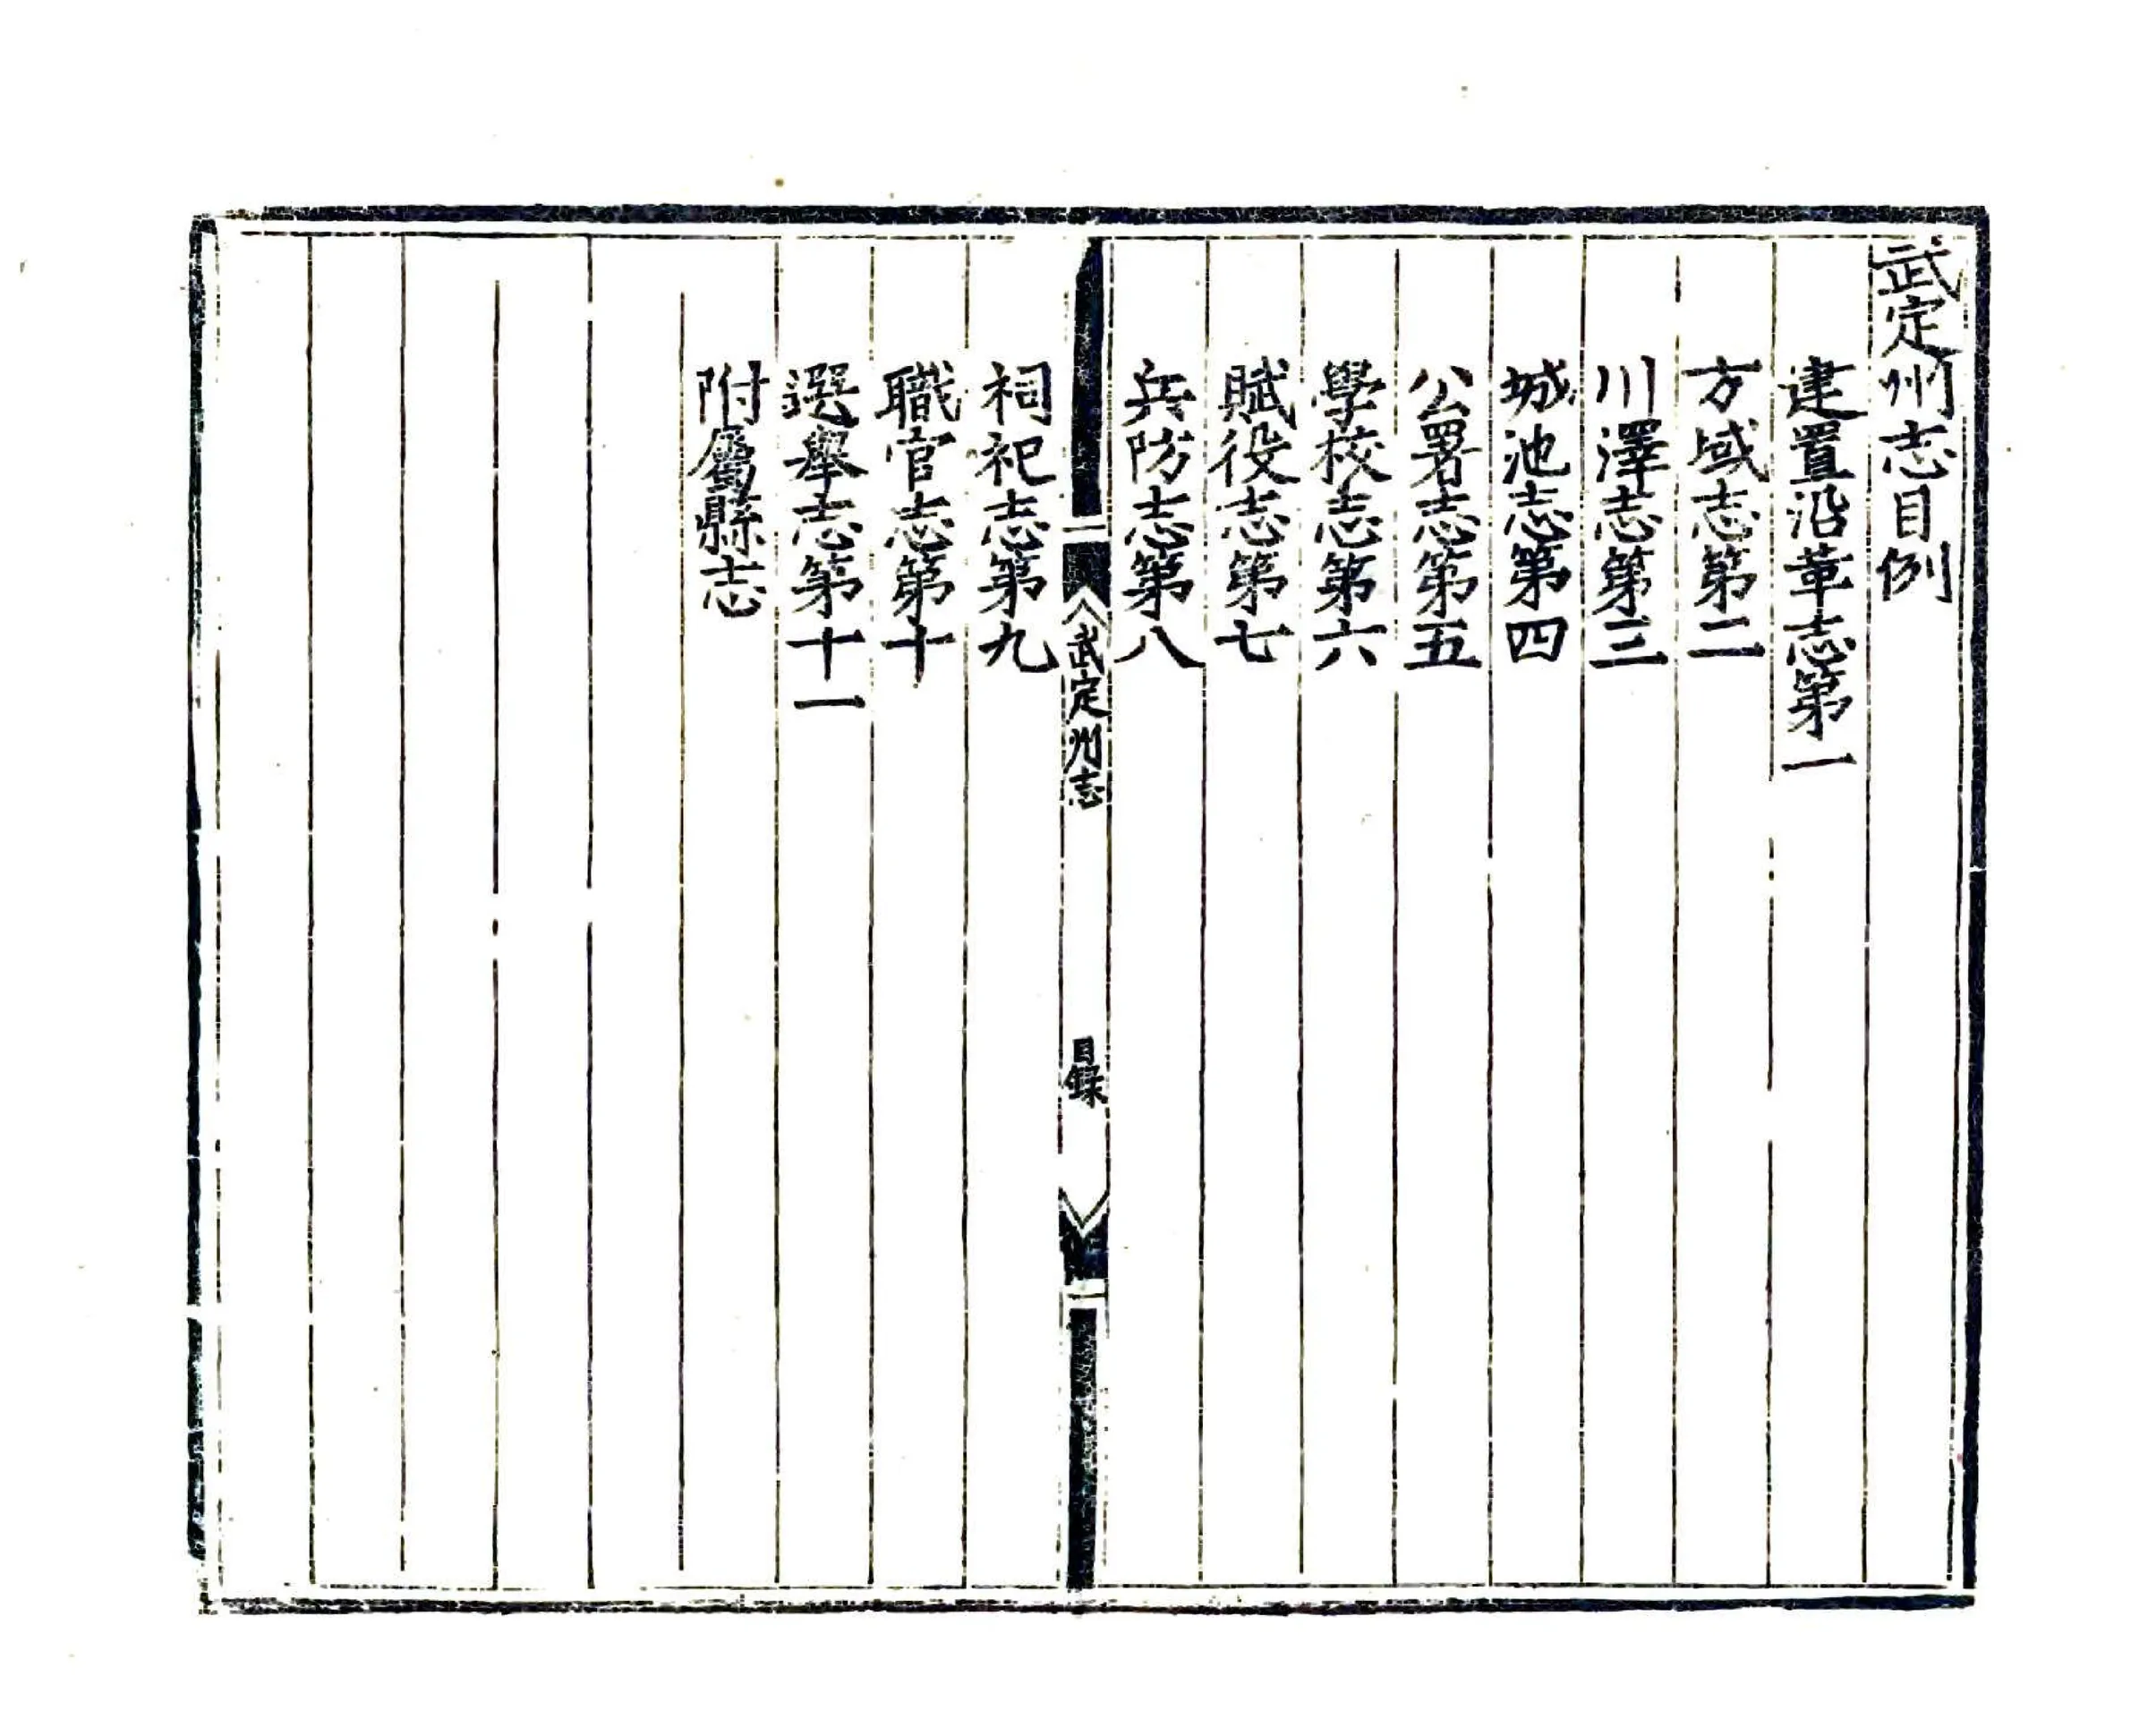 武定州志目例
建置沿革志第一
方域志第二
川澤志第三
城池志第四
公署志第五
學校志第六
賦役志第七
兵防志第八
武定州志
目錄
祠祀志第九
職官志第十
選舉志第十一
附屬縣志